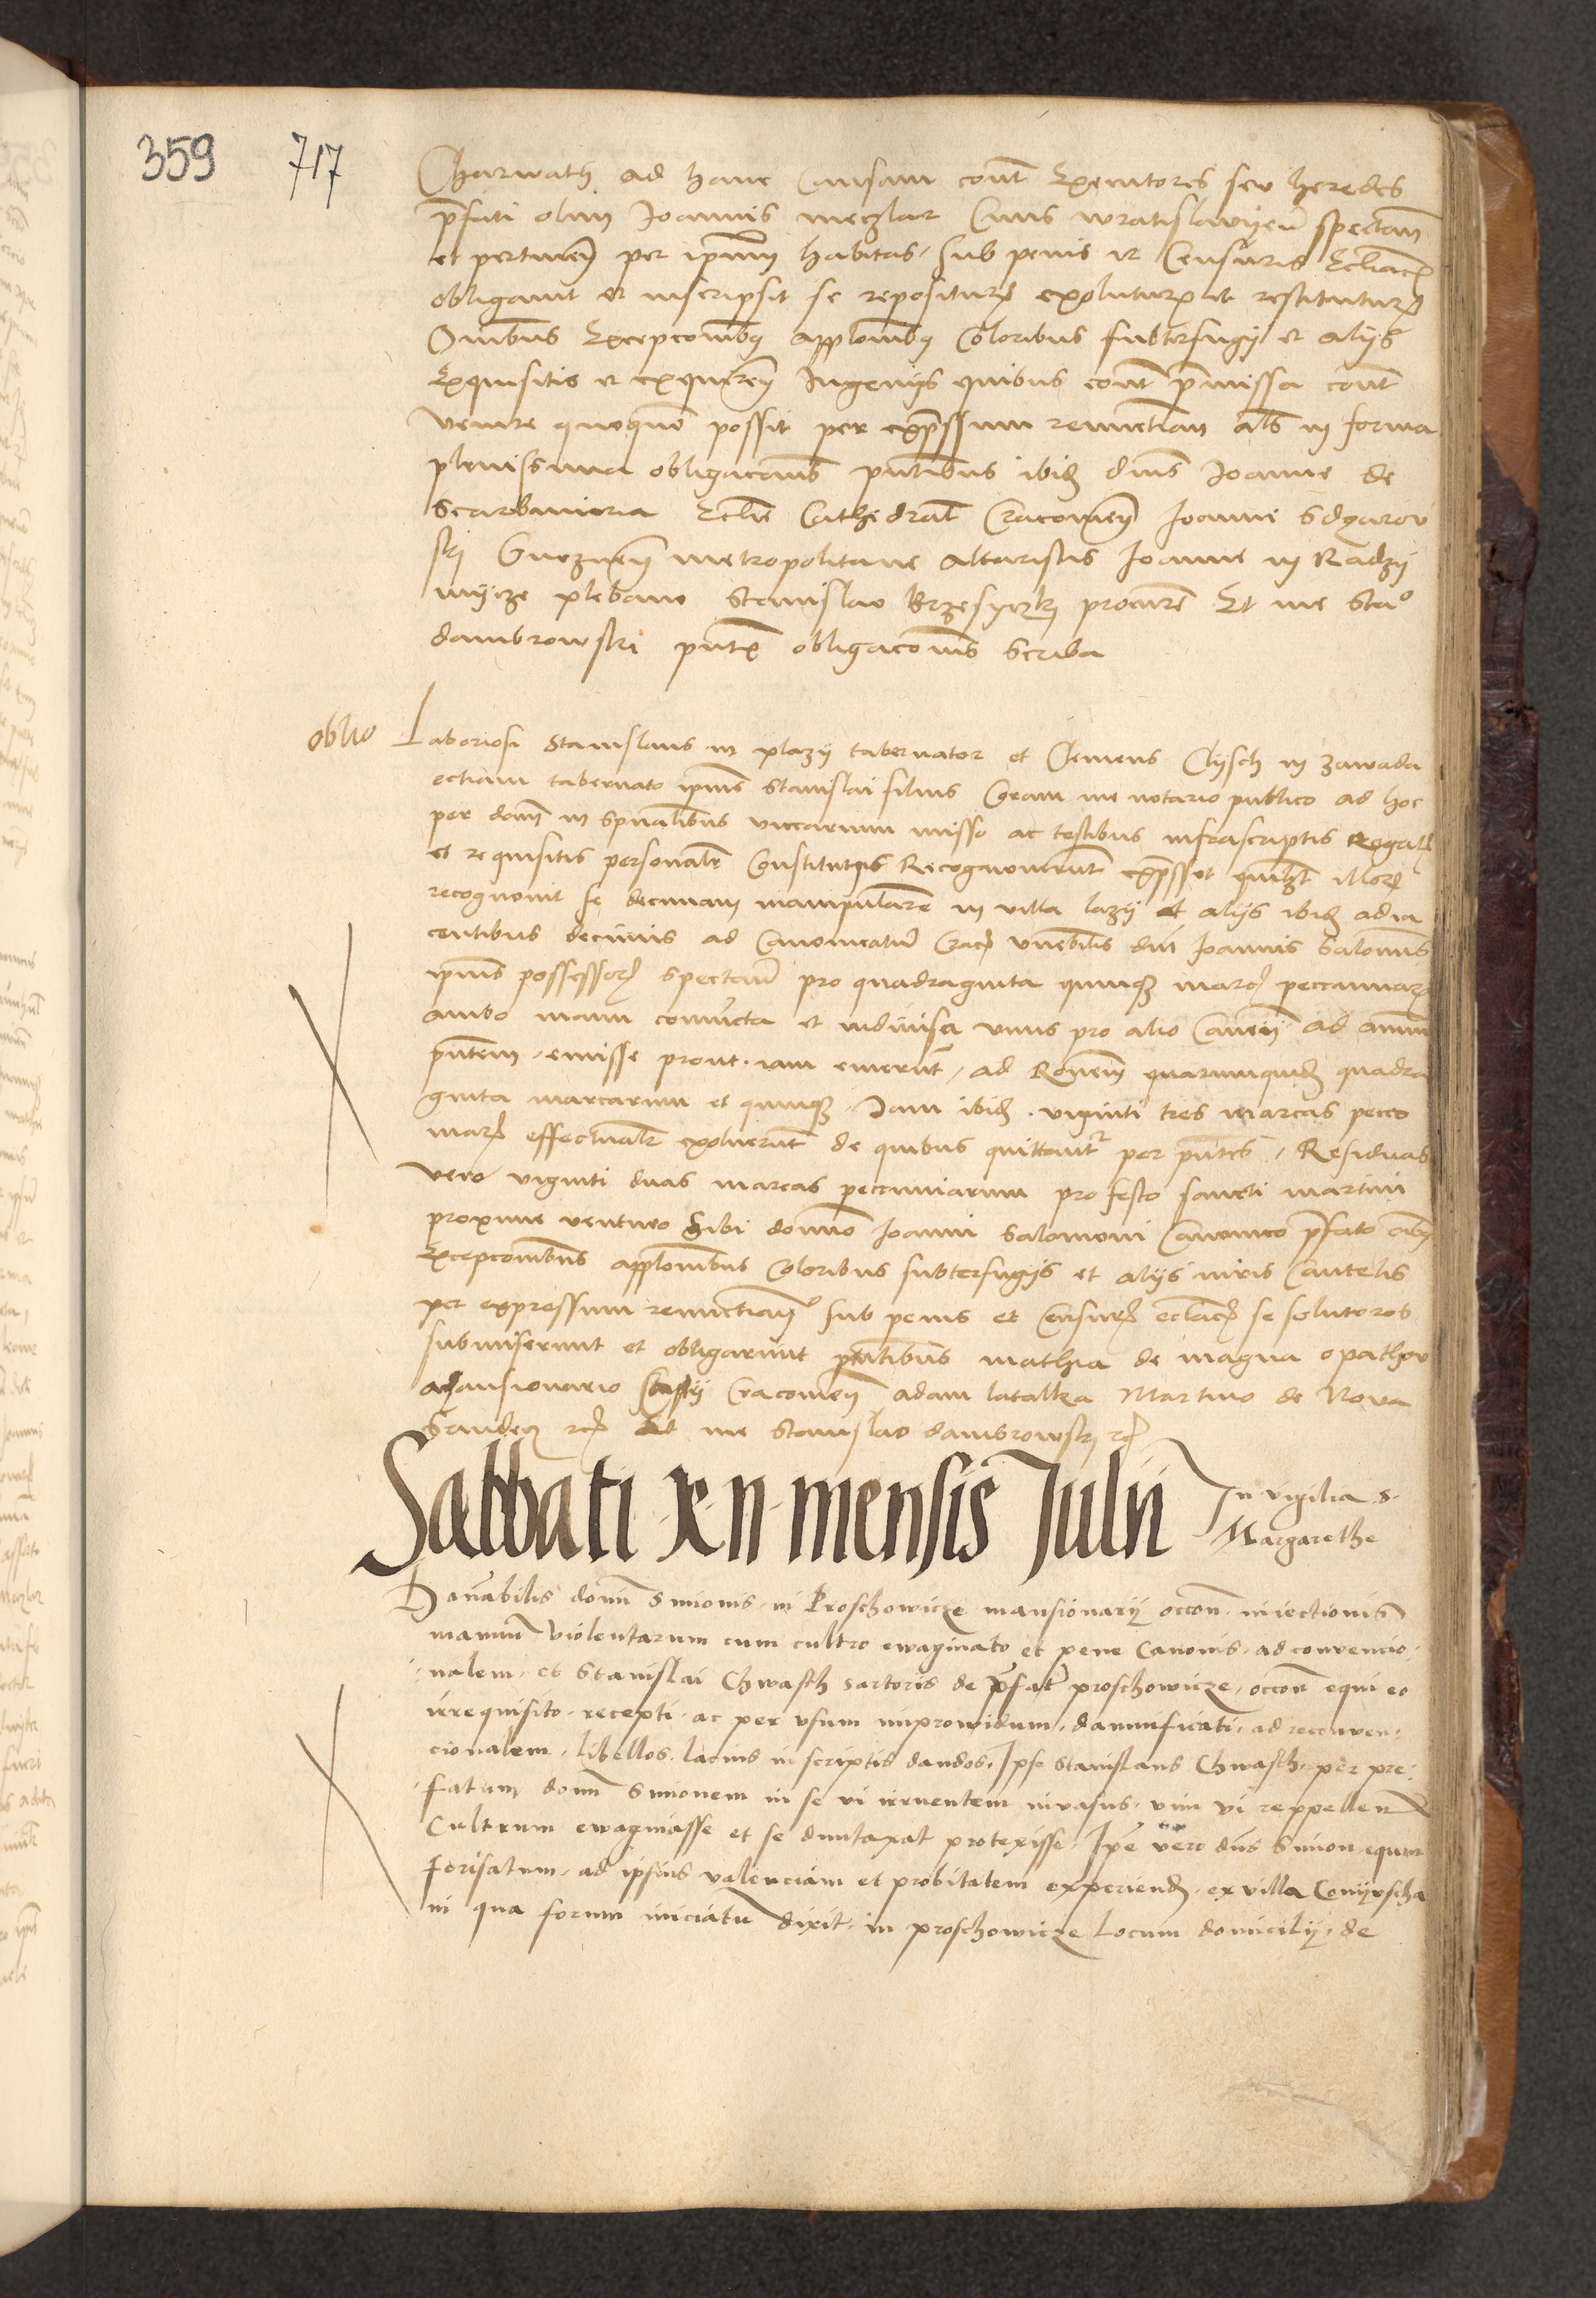 359 717
Charwath ad hanc Causam contᷓ Executores seu heredes
p̄fati olim Joannis meczlar Ciuis wratislauyeñ spectañ
et pertineñ per ipsum habitas, sub penis et Censuris Ecclīacis
obligauit et inscripsit se repositurum exoluturum et restiturum
Omībus Excepcōnibus applōnibus Coloribus subterfugijs et alijs
Exquisitis et exquireñ Ingenijs quibus contᷓ p̄missa contᷓ
venire quoquō possit per exp̄ssum renunctiañ als in forma
plenissima obligacōnis p̄ntibus ibidē dn̄is Joanne de
Scarbimiria Ecclīe Cathedral Cracouieñ Joanne
ski Gnezneñ metropolitane altaristis Joanne in Radzy
myicze plebano Stanislao Brzesyczky procurē Et me Sta°
dambrowski p̄ntis obligacōnis scriba
oblio Laboriosi Stanislaus in plazy tabernator et Clemens Clysch in zawada
ectiam tabernato ipsius Stanislai filius Coram me notario publico ad hoc
per domᷓ in sp̄ualibus viccarium misso ac testibus infrascriptis Rogatis
et requisitis personalr Constitutis Recognouerunt exp̄sse et quilibet illorum
recognouit se decimam manipularem in villa lazy et alijs ibidē adia
centibus decimis ad Canonicatū Crac̄ venēbilis dn̄i Joannis Salomonis
ipsius possessoris spectañ pro quadraginta quinque marcis peccuniarum
ambo manu coniūcta et indiuisa vnus pro alio Caueñ ad annum
p̄ntem emisse prout iam emerunt, ad Ronem quarumquidē quadra
ginta marcarum et quinque Iam ibidē viginti tres marcas pecco
marum effectualr exoluerunt de quibus quittantr per p̄ntes, Residuas
vero viginti duas marcas peccuniarum pro festo sancti martini
proxime venturo Sibi domᷓo Joanni Salomoni Canonico p̄fato oībus
Excepcōnibus applōnibus Coloribus subterfugijs et alijs iuris Cautelis
per expressum renunctiañ Sub penis et Censuris ecclīacis se soluturos
submiserunt et obligarunt p̄ntibus mathia de magna opathow
mansionario Cracouieñ adam latalka Martino de Noua
et me Stanislao dambrowsky
Sabbati xii mensis Julii In vigilia s.
Margarethe
Honabilis domᷓ Simonis in Proschowicze mansionarij occoñ iniectionis
manuū violentarum cum cultro ewaginato et pene Canonis ad conuencio
nalem et Stanislai Chwasch sartoris de p̄fat proschowicze, occoñ equi eo
irrequisito recepti ac per vsum improwidum damnificati ad reconuen
cionalem, libellos lacius in scriptis dandos, Ipse Stanislaus Chwasch per pre
fatum domᷓ Simonem in se vi irruentem inuasus vim vi reppellend
Cultrum ewaginasse et se duntaxat protexisse, Ipē vero dn̄s Simon equum
forisatum ad ipsius valenciam et probitatem experiendam ex villa Conyuscha
in qua forum iniciatū dixit in proschowicze locum domicilij de